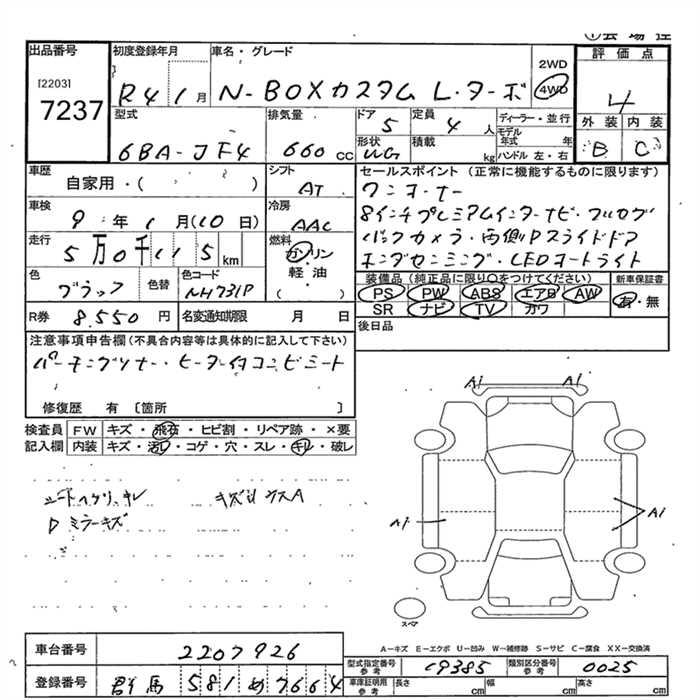 出品番号
[2203]
7237
初度登録年月
R4 1月
車名・グレード
N-BOXカスタム L・ターボ
2WD
4WD
評価点
4
外装 内装
B C
型式
6BA-JF4
排気量
660 cc
ドア
5
形状
WG
定員
4 人
積載
kg
ディーラー・並行
モデル年式 年
ハンドル 左・右
車歴
自家用・( )
車検
9年1月(10日)
走行
5万0千115km
色
ブラック
色替
色コード
NH731P
シフト
AT
冷房
AAC
燃料
ガソリン
軽油
( )
R券 8.550円
名変通知期限 月 日
セールスポイント (正常に機能するものに限ります)
ワンオーナー
8インチプレミアムインターナビ・フルセグ
バックカメラ・両側Pスライドドア
ホンダセンシング・LEDオートライト
装備品 (純正品に限り○をつけてください)
PS PW ABS エアB AW
SR ナビ TV カワ
新車保証書
有・無
後日品
注意事項申告欄(不具合内容等は具体的に記入して下さい)
パーキングソナー・ヒーター付コンビシート
修復歴 有 [箇所 ]
検査員記入欄
FW キズ・飛石・ヒビ割・リペア跡・×要
内装 キズ・汚レ・コゲ・穴・スレ・キレ・破レ
シートヘタリ、キレ
キズ凹 小スA
D ミラーキズ
A1 A1
A1 A1
スペア
A-キズ E-エクボ U-凹み W-補修跡 S-サビ C-腐食 XX-交換済
車台番号 2207926
登録番号 群馬 581 め 7664
型式指定番号 参考 19385
類別区分番号 参考 0025
車庫証明用 参考 長さ cm 幅 cm 高さ cm